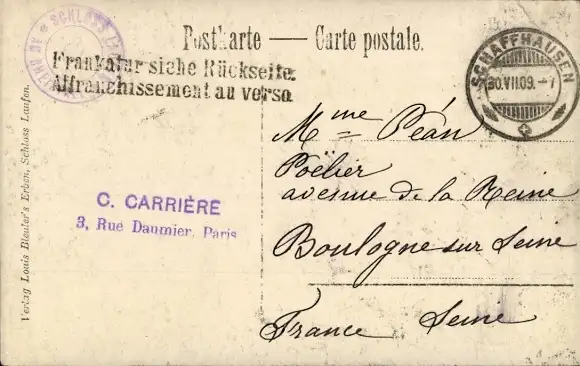 Postkarte — Carte postale.
SCHLOSS
Frankatur siehe Rückseite.
Affranchissement au verso
SCHAFFHAUSEN
30.VII.09. - 7
Mme Péan
Poëlier
avenue de la Reine
Boulogne sur Seine
France Seine
C. CARRIÈRE
3, Rue Daumier, Paris
Verlag Louis Bleuler's Erben, Schloss Laufen.